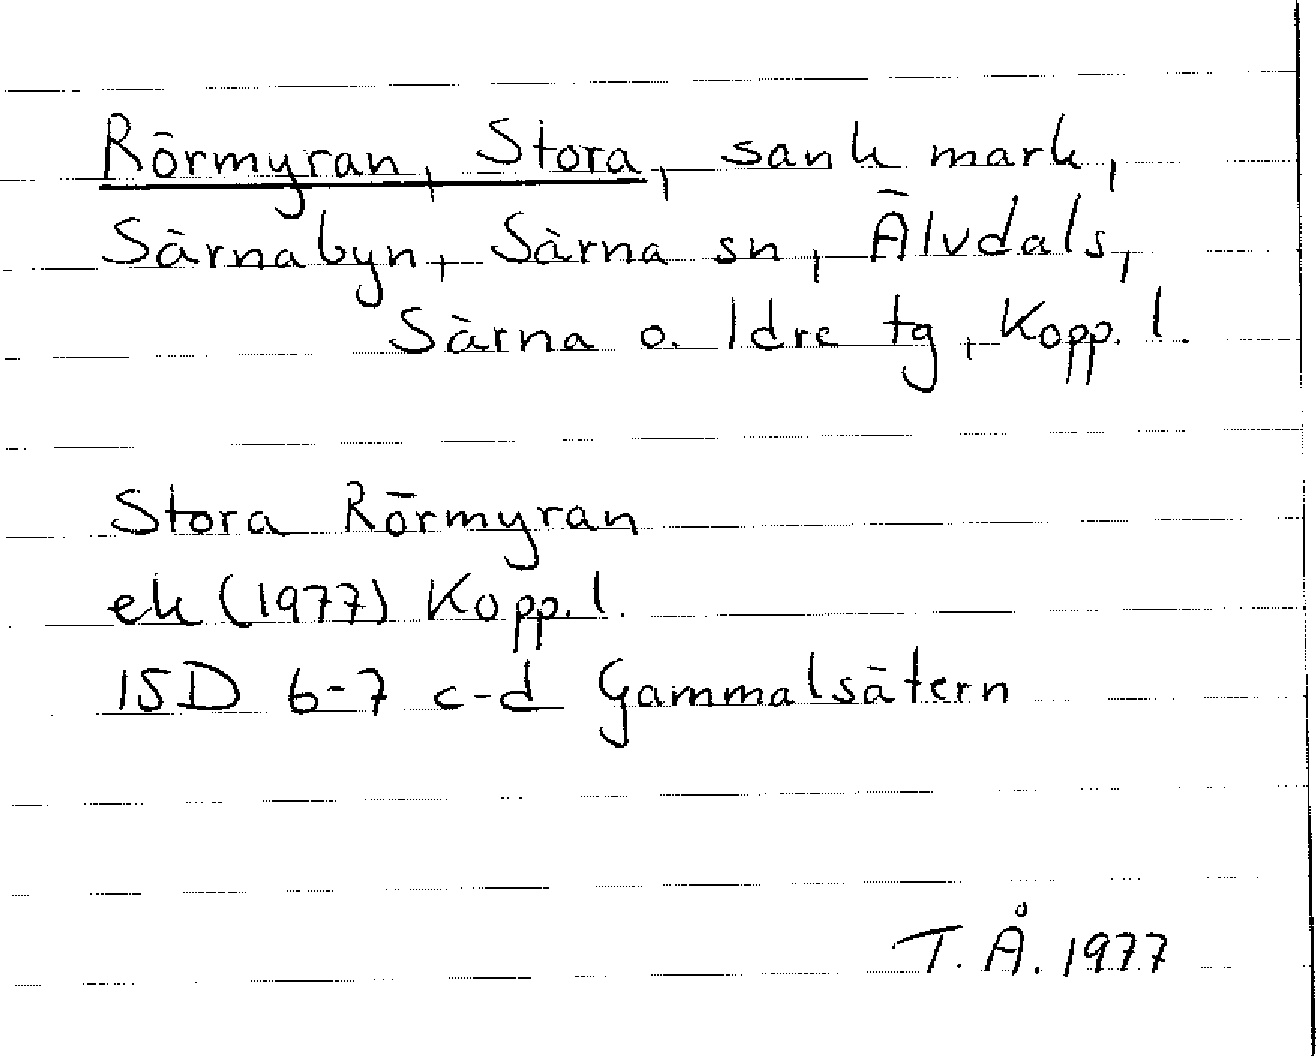 Rörmyran, Stora, sank mark,
Särnabyn, Särna sn, Älvdals,
Särna o. Idre tg, Kopp. l.
Stora Rörmyran
ek (1977) Kopp. l.
15D 6-7 c-d Gammalsätern
T. Å. 1977